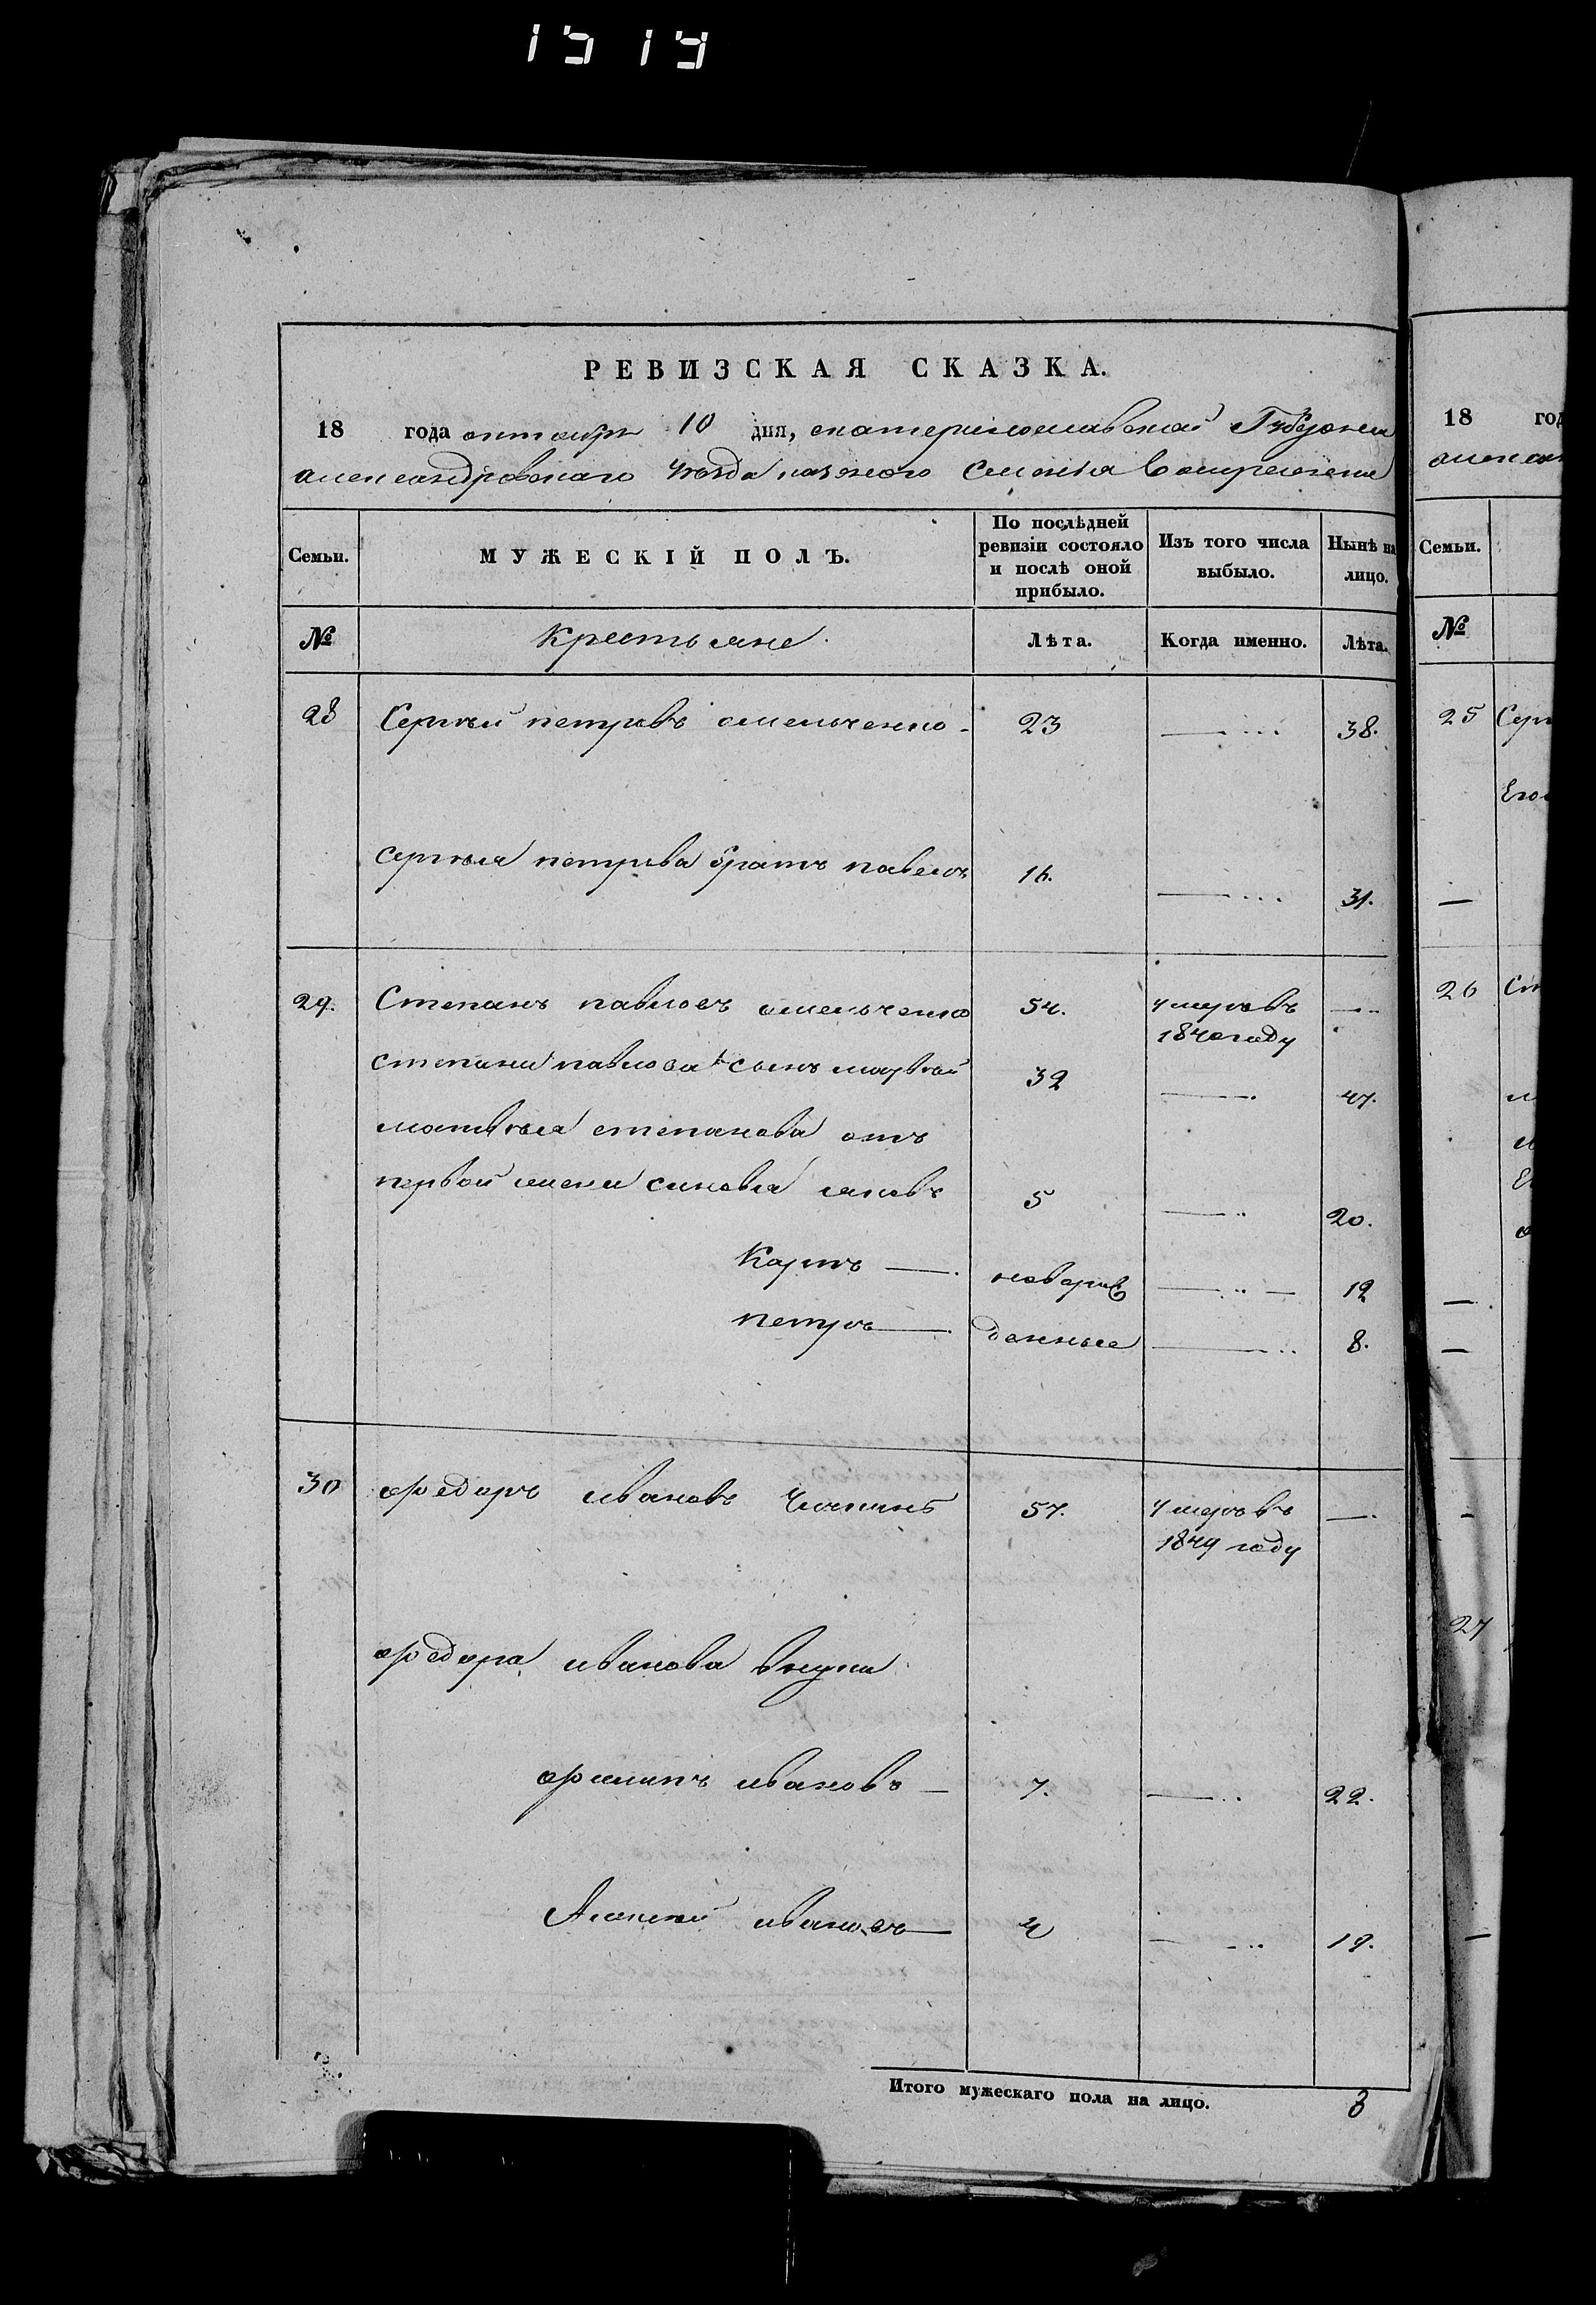 1514
РЕВИЗСКАЯ СКАЗКА.
18 года октября 10 дня, екатеринославской Губернии
александровскаго уѣзда казеного Селения Воскресенки
Семьи.
МУЖЕСКІЙ ПОЛЪ.
По послѣдней ревизіи состояло и послѣ оной прибыло.
Изъ того числа выбыло.
Нынѣ на лицо.
№
Крестьяне.
Лѣта.
Когда именно.
Лѣта.
28 Сергѣй петровъ омельченко 23 38.
сергѣя петрова братъ павелъ 16. 31.
29. Степанъ павловъ омельченко 54. умеръ въ
1840 году
степана павлова сынъ матвѣй 32 47.
матвѣя степанова отъ
первой жены синовья яковъ 5 20.
Карпъ новорож 12
петръ денные 8.
30 федоръ ивановъ 57. умеръ въ
1849 году
федора иванова внуки
филипъ ивановъ 7. 22.
Алексѣй ивановъ 4 19.
Итого мужескаго пола на лицо. 8
18 год
алексан
Семьи.
№
25 Серг
Его
26 Ст
27